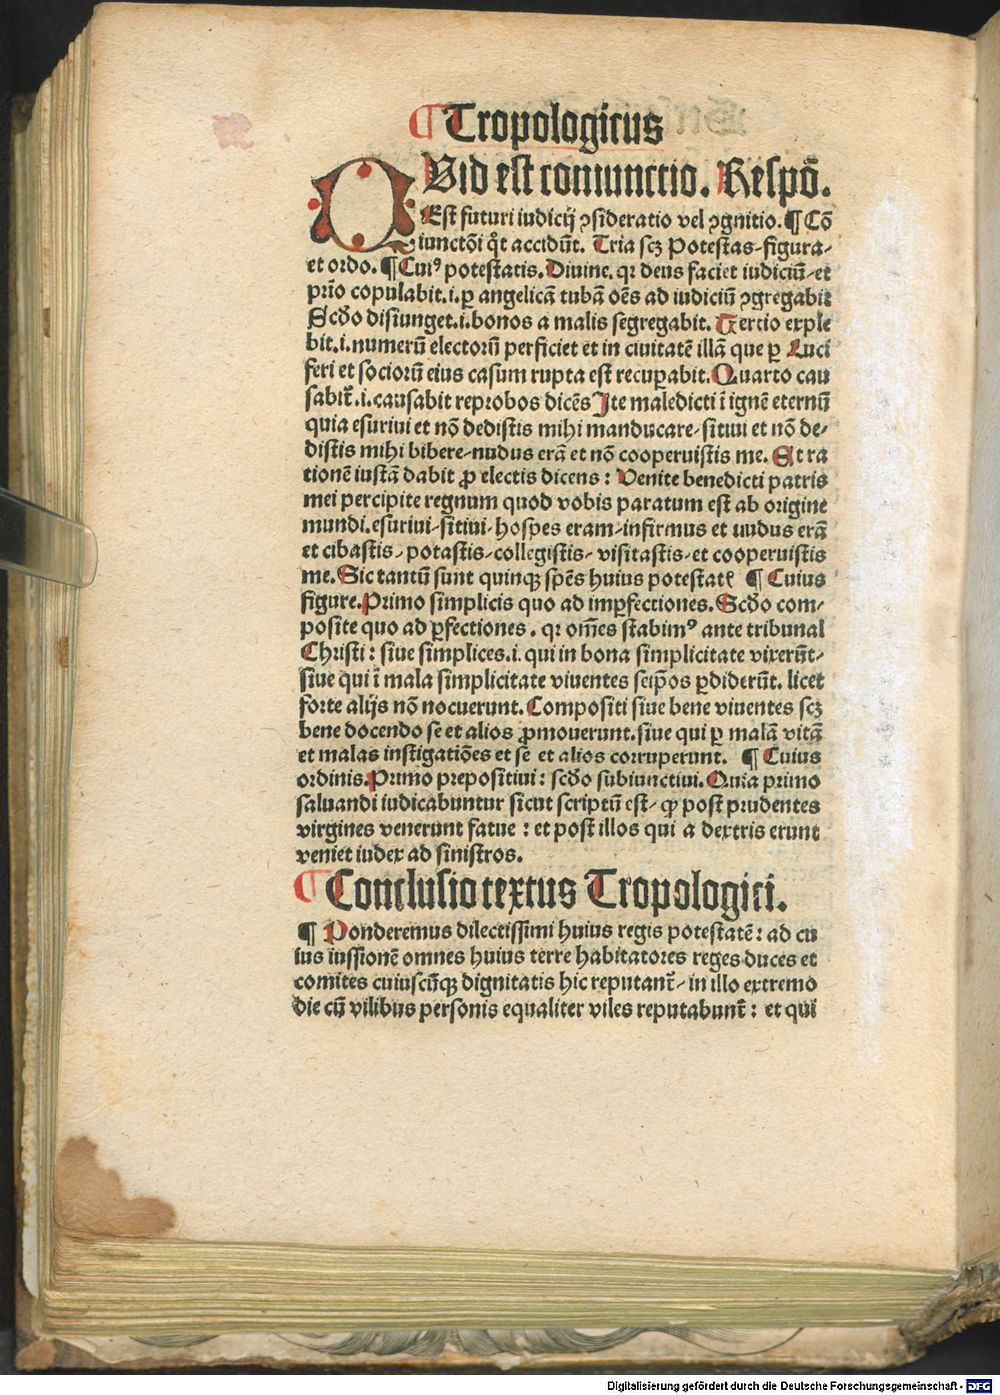 ¶ Tropologicus
QUid est coniunctio. Respō.
Est futuri iudicij ꝯsideratio vel ꝯgnitio. ¶ Cō
iunctōi qͦt accidūt. Tria scꝫ Potestas-figura-
et ordo. ¶ Cuiꝰ potestatis. Diuine. qꝛ deus faciet iudiciū-et
prīo copulabit.i. ꝑ angelicā tubā oēs ad iudiciū ꝯgregabit
Scďo disiunget.i. bonos a malis segregabit. Tertio exple
bit.i. numerū electorū perficiet et in ciuitatē illā que ꝑ Luci
feri et sociorū eius casum rupta est recuꝑabit. Quarto cau
sabit̄.i. causabit reprobos dicēs Ite maledicti ī ignē eternū
quia esuriui et nō dedistis mihi manducare-sitiui et nō de-
distis mihi bibere-nudus erā et nō cooperuistis me. Et ra
tionē iustā dabit ꝓ electis dicens : Venite benedicti patris
mei percipite regnum quod vobis paratum est ab origine
mundi. esuriui-sitiui-hospes eram-infirmus et uudus erā
et cibastis-potastis-collegistis-visitastis-et cooperuistis
me. Sic tantū sunt quinqꝫ spēs huius potestatꝭ ¶ Cuius
figure. Primo simplicis quo ad imꝑfectiones. Scďo com-
posite quo ad ꝑfectiones. qꝛ om̄es stabimꝰ ante tribunal
Christi : siue simplices.i. qui in bona simplicitate vixerūt-
siue qui ī mala simplicitate viuentes seip̄os ꝑdiderūt. licet
forte alijs nō nocuerunt. Compositi siue bene viuentes scꝫ
bene docendo se et alios ꝓmouerunt. siue qui ꝑ malā vitā
et malas instigatiōes et se et alios corruperunt. ¶ Cuius
ordinis. Primo prepositiui : scďo subiunctiui. Quia primo
saluandi iudicabuntur sicut scriptū est- ꝙ post prudentes
virgines venerunt fatue : et post illos qui a dextris erunt
veniet iudex ad sinistros.
¶ Conclusio textus Tropologici.
¶ Ponderemus dilectissimi huius regis potestatē : ad cu
ius iussionē omnes huius terre habitatores reges duces et
comites cuiuscūqꝫ dignitatis hic reputant̄-in illo extremo
die cū vilibus personis equaliter viles reputabunt̄ : et qui
Digitalisierung gefördert durch die Deutsche Forschungsgemeinschaft - DFG